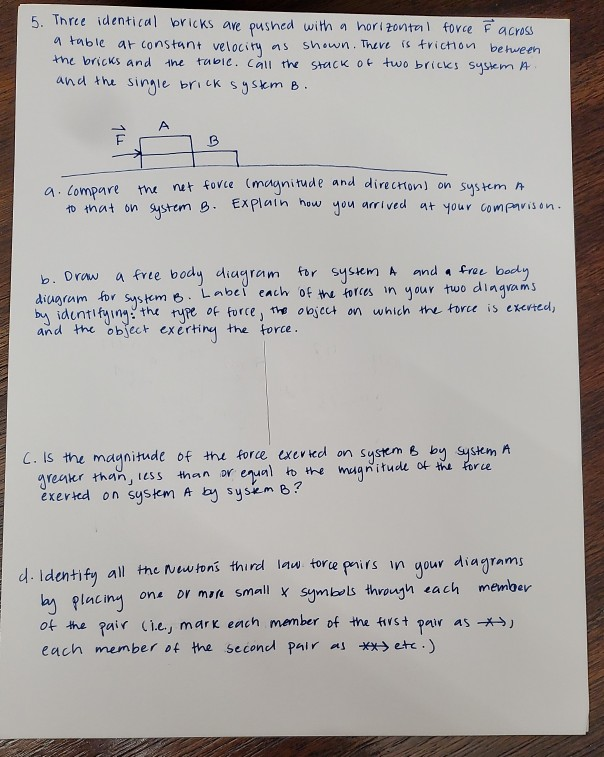 5. Three identical bricks are pushed with a horizontal force F across
a table at constant velocity as shown. There is friction between
the bricks and the table. Call the stack of two bricks system A
and the single brick system B.
F
A
B
a. Compare the net force (magnitude and direction) on system A
to that on system B. Explain how you arrived at your comparison.
b. Draw a free body diagram for system A and a free body
diagram for system B. Label each of the forces in your two diagrams
by identifying: the type of force, the object on which the force is exerted,
and the object exerting the force.
C. Is the magnitude of the force exerted on system B by system A
greater than, less than or equal to the magnitude of the force
exerted on system A by system B?
d. Identify all the Newton's third law force pairs in your diagrams
by placing one or more small x symbols through each member
of the pair (i.e., mark each member of the first pair as -x->,
each member of the second pair as -xx-> etc.)